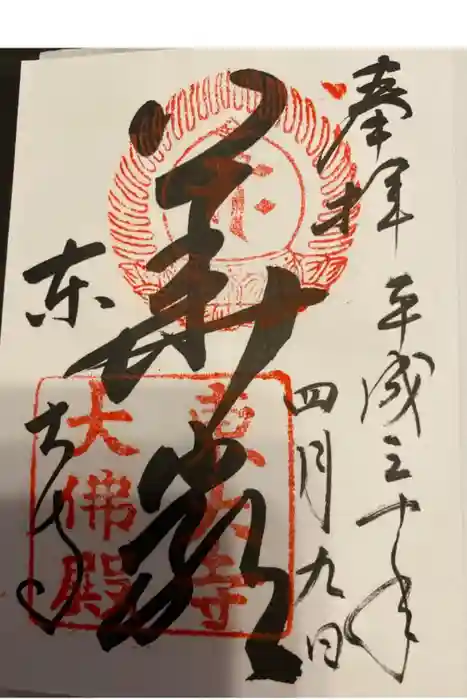 奉拝
平成三十年
四月九日
華厳
東大寺
東大寺
大佛殿